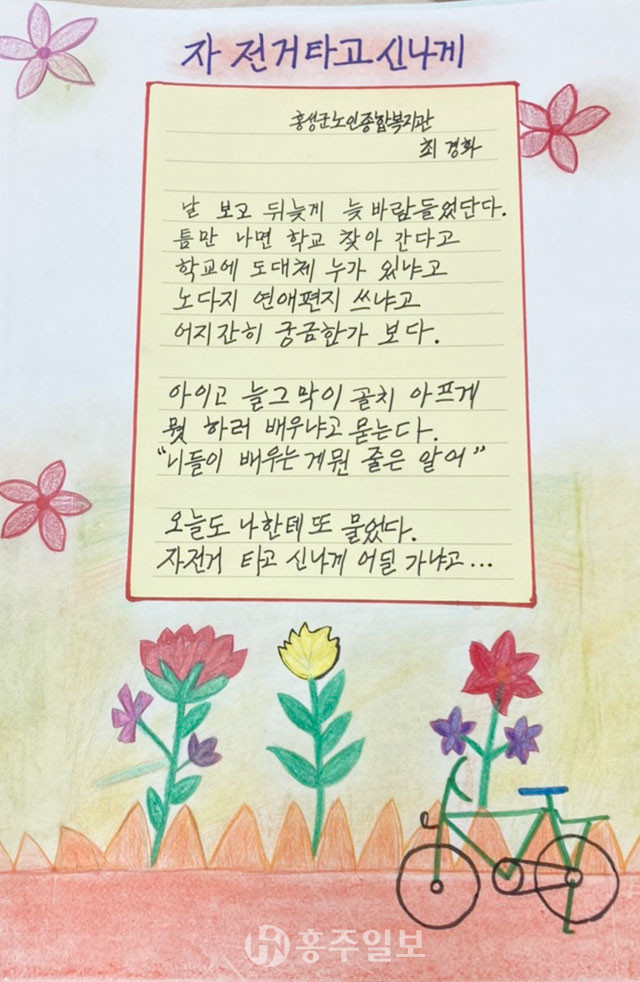 자 전거타고 신나게
홍성군노인종합복지관
최 경화
날 보고 뒤늦게 늦바람들었단다.
틈만 나면 학교 찾아 간다고
학교에 도대체 누가 있냐고
노다지 연애편지 쓰냐고
어지간히 궁금한가 보다.
아이고 늘그막이 골치 아프게
뭣 하러 배우냐고 묻는다.
“니들이 배우는게뭔 줄은 알어”
오늘도 나한테 또 물었다.
자전거 타고 신나게 어딜 가냐고...
홍주일보